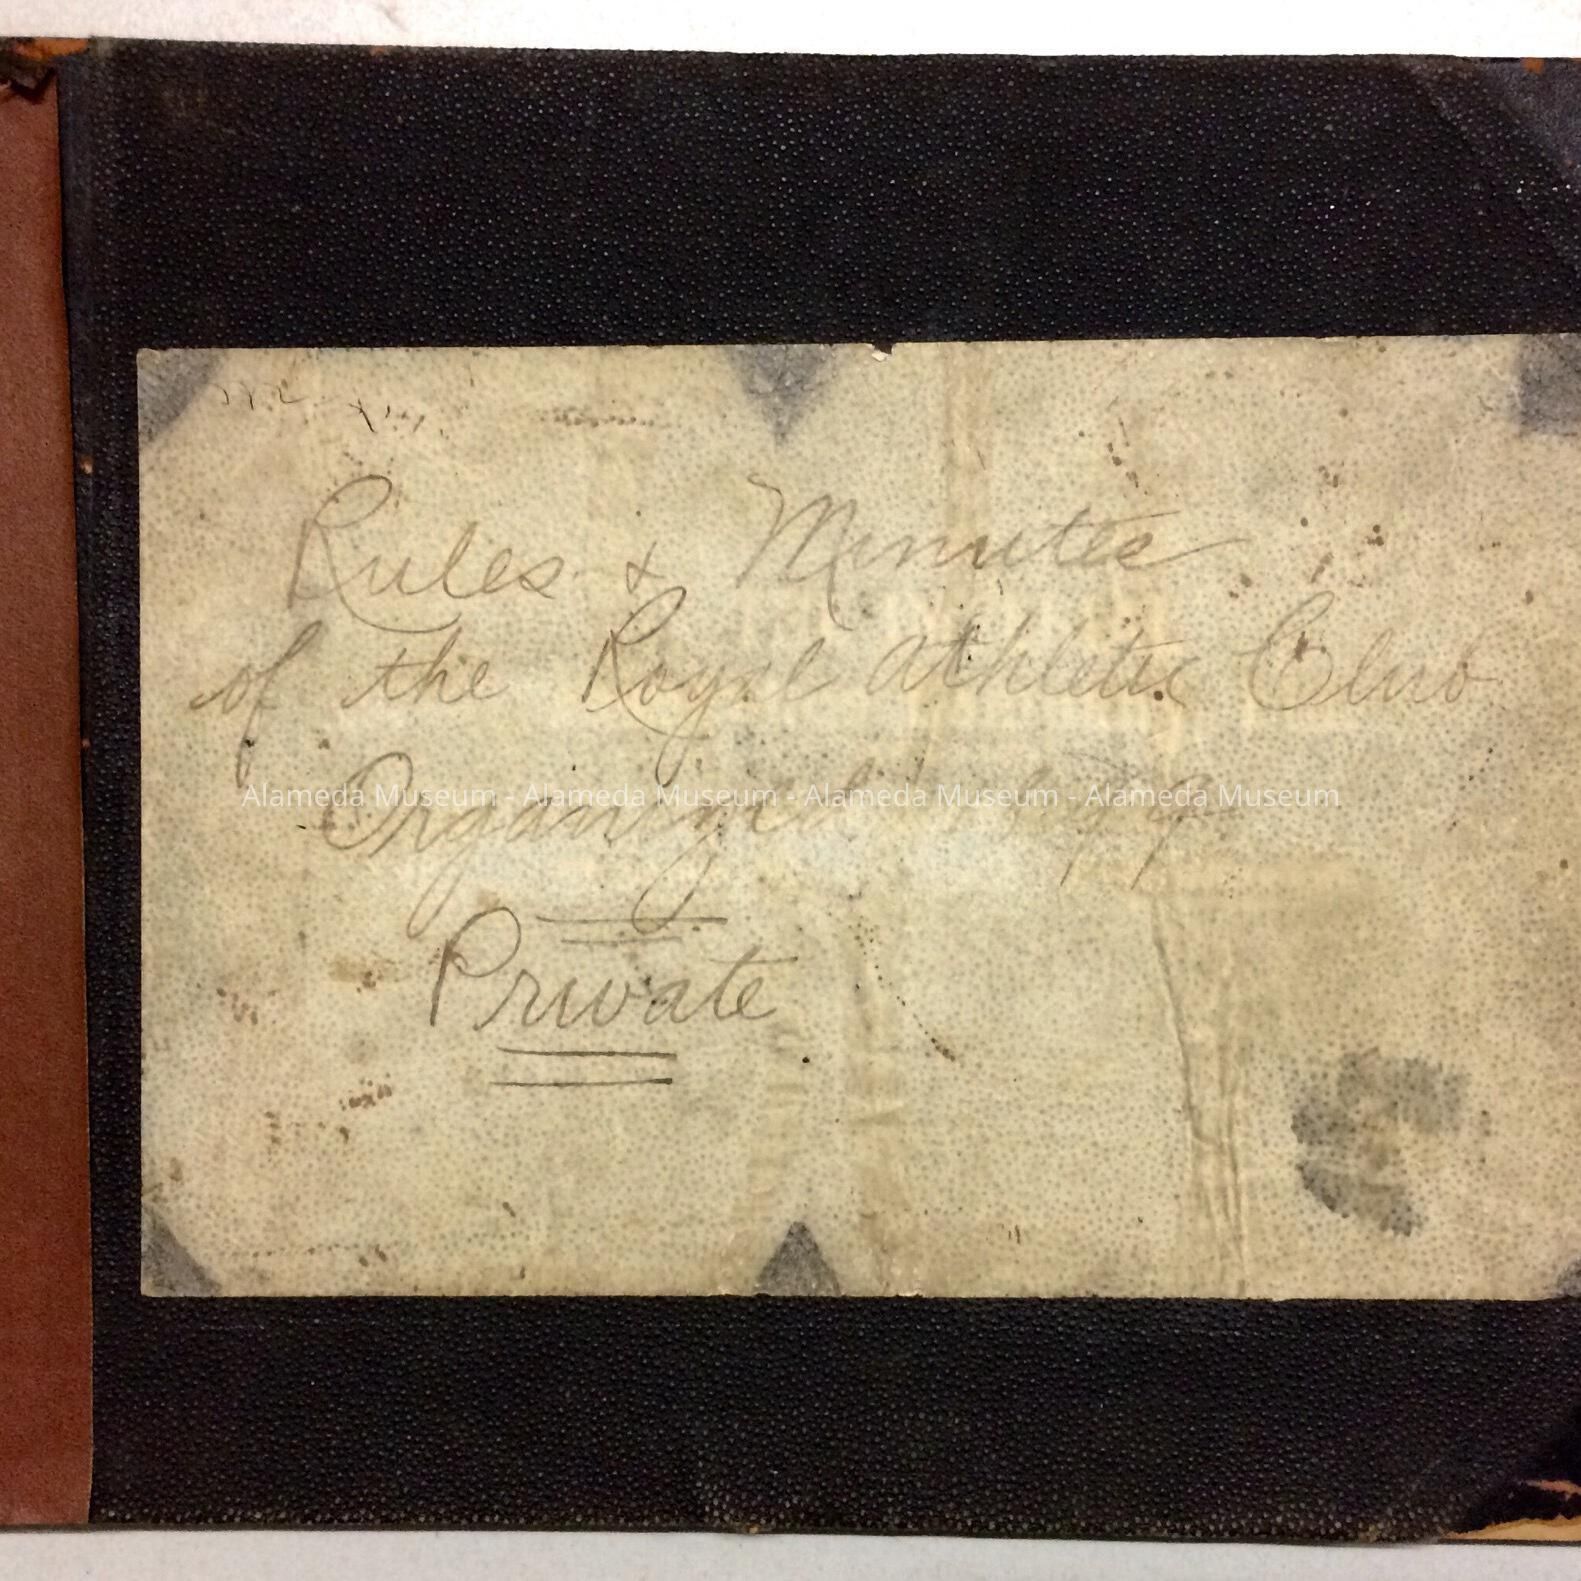 Rules & Minutes
of the Royal Athletic Club
Alameda Museum - Alameda Museum - Alameda Museum - Alameda Museum
Organized
Private